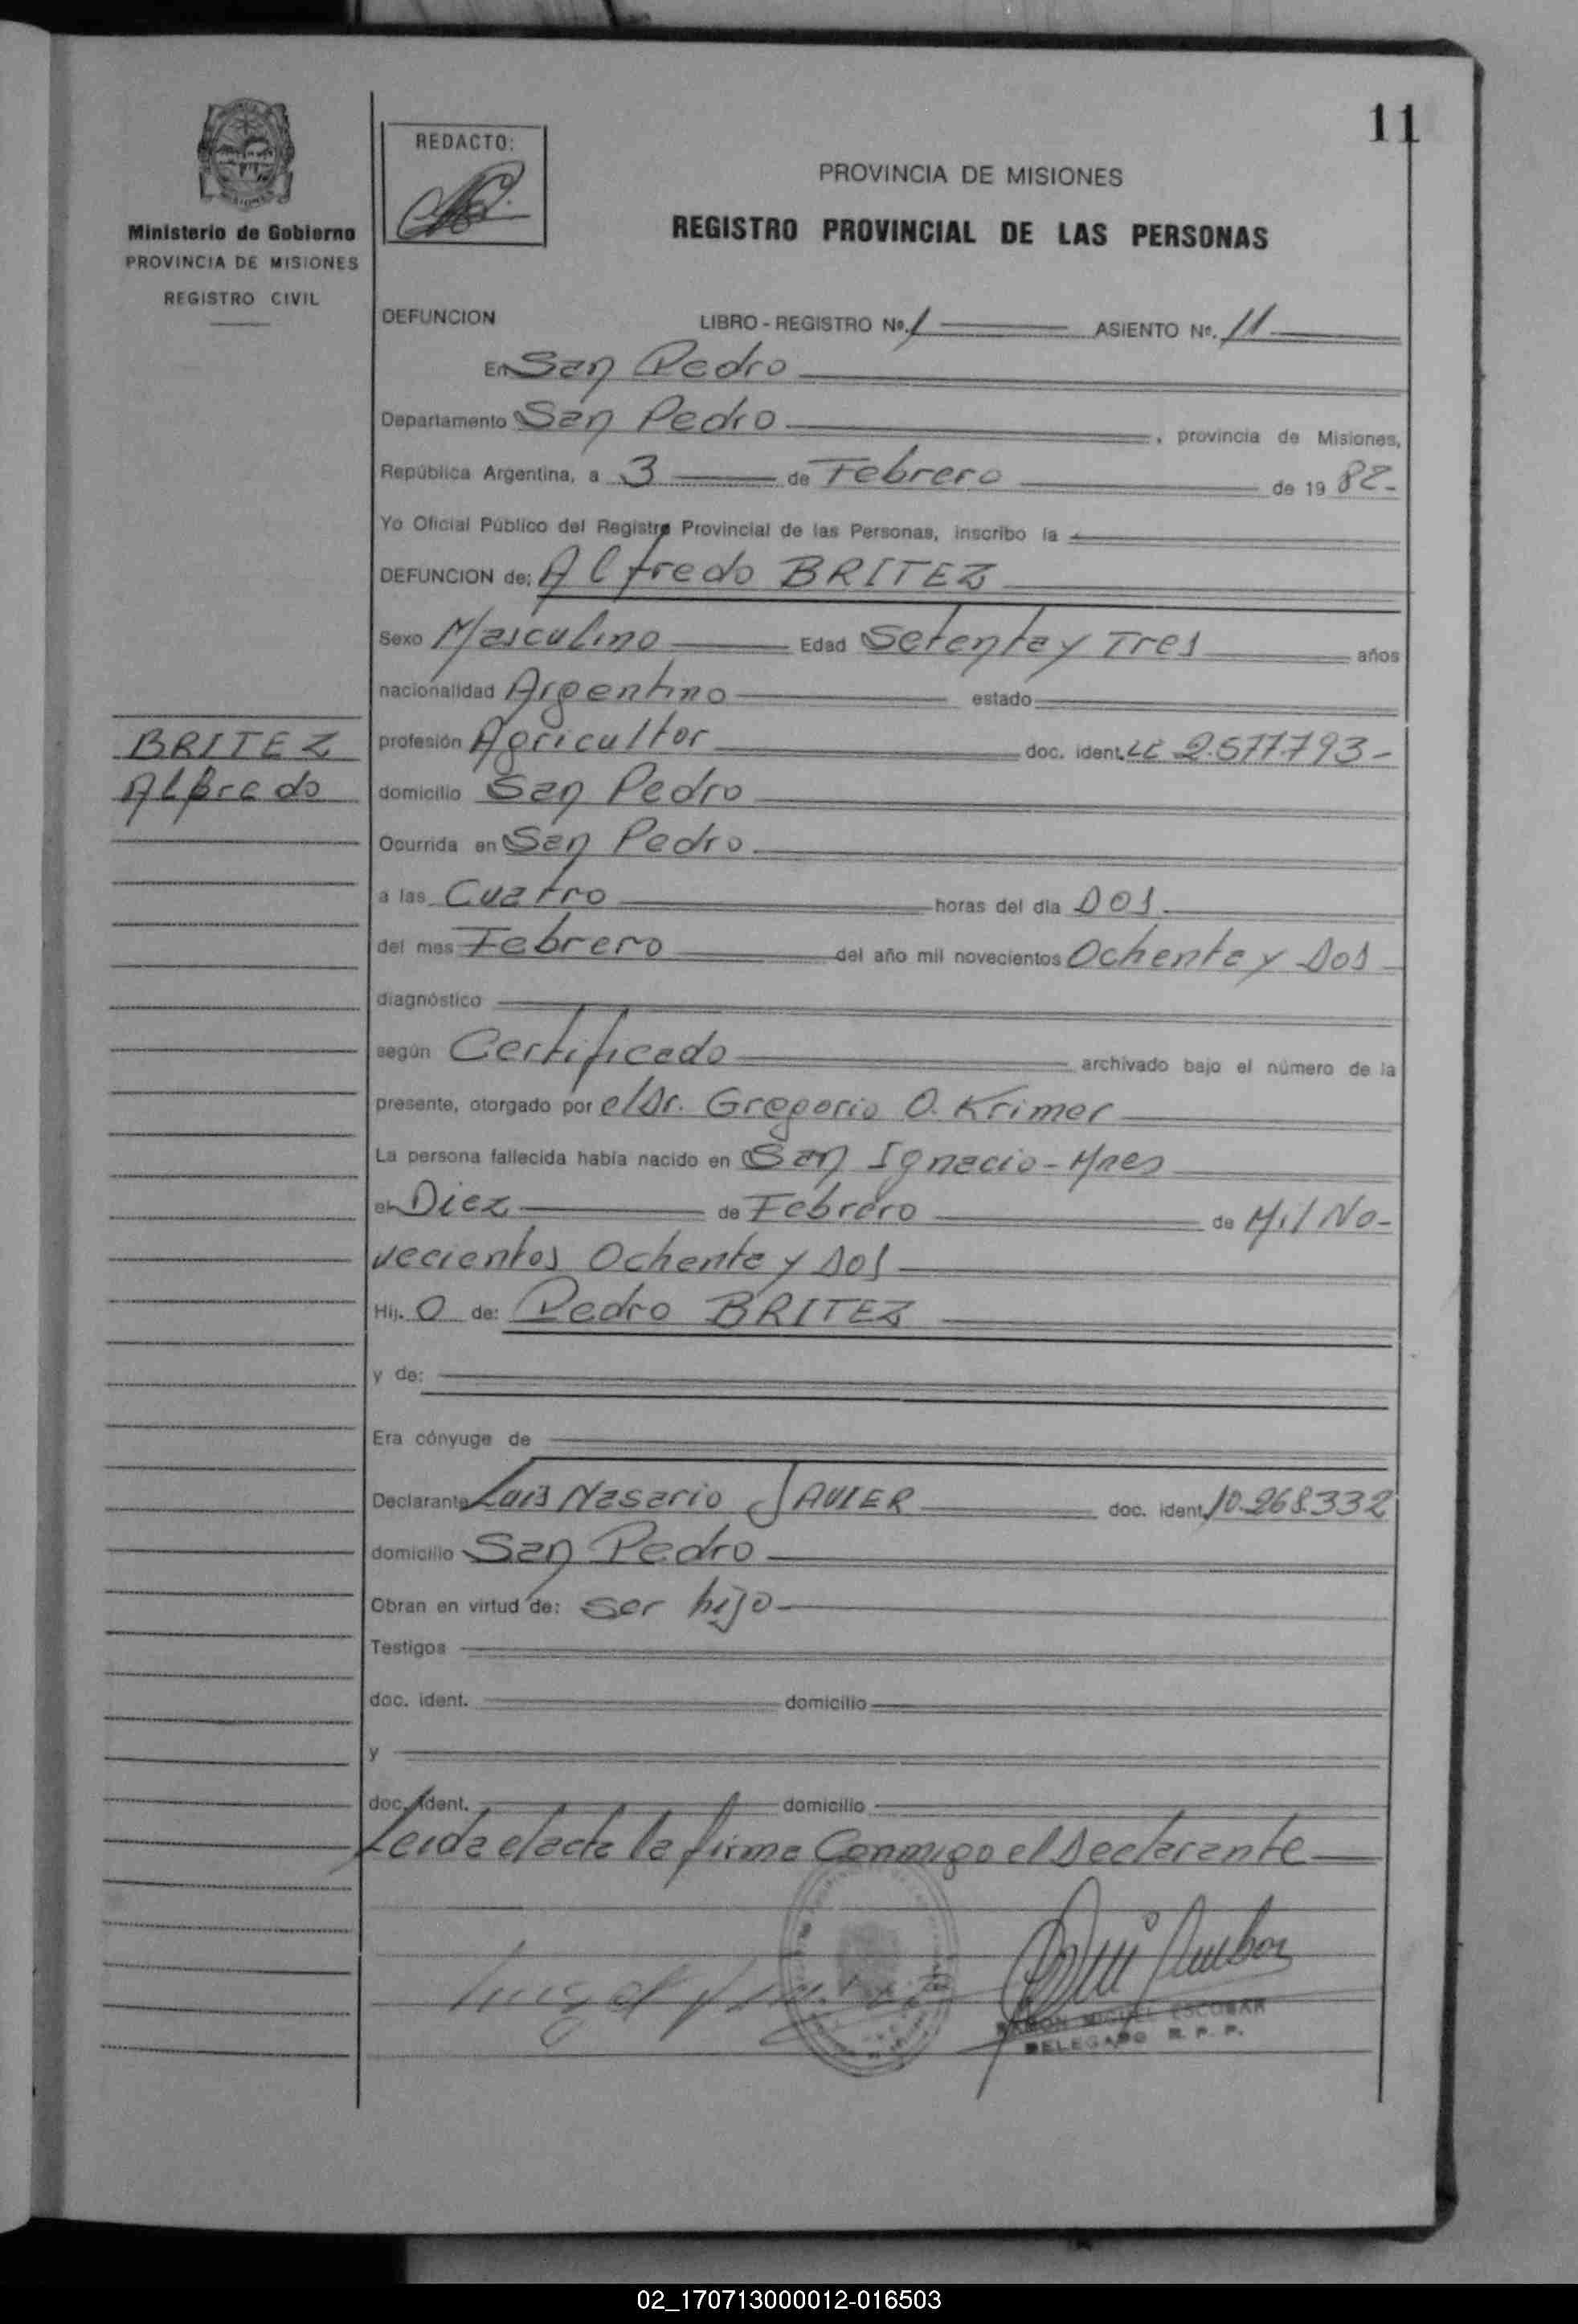 11
REDACTO:
PROVINCIA DE MISIONES
REGISTRO PROVINCIAL DE LAS PERSONAS
Ministerio de Gobierno
PROVINCIA DE MISIONES
REGISTRO CIVIL
DEFUNCION LIBRO - REGISTRO Nº. 1 ASIENTO Nº. 11
En San Pedro
Departamento San Pedro, provincia de Misiones,
República Argentina, a 3 de Febrero de 19 82-
Yo Oficial Público del Registro Provincial de las Personas, inscribo la
DEFUNCION de: Alfredo BRITEZ
Sexo Masculino Edad Setenta y Tres años
nacionalidad Argentino estado
BRITEZ
Alfredo
profesión Agricultor doc. ident. LE 2.577.793-
domicilio San Pedro
Ocurrida en San Pedro
a las Cuatro horas del día Dos
del mes Febrero del año mil novecientos Ochenta y Dos
diagnóstico
según Certificado archivado bajo el número de la
presente, otorgado por el Dr. Gregorio O. Krimer
La persona fallecida había nacido en San Ignacio - Mnes
el Diez de Febrero de Mil No-
vecientos Ochenta y Dos
Hij. o de: Pedro BRITEZ
y de:
Era cónyuge de
Declarante Luis Nasario JAVIER doc. ident. 10.268.332
domicilio San Pedro
Obran en virtud de: ser hijo
Testigos
doc. ident. domicilio
y
doc. ident. domicilio
Leida el acta la firma Conmigo el Declarante
RAMON MIGUEL ESCOBAR
DELEGADO R. P. P.
02_170713000012-016503